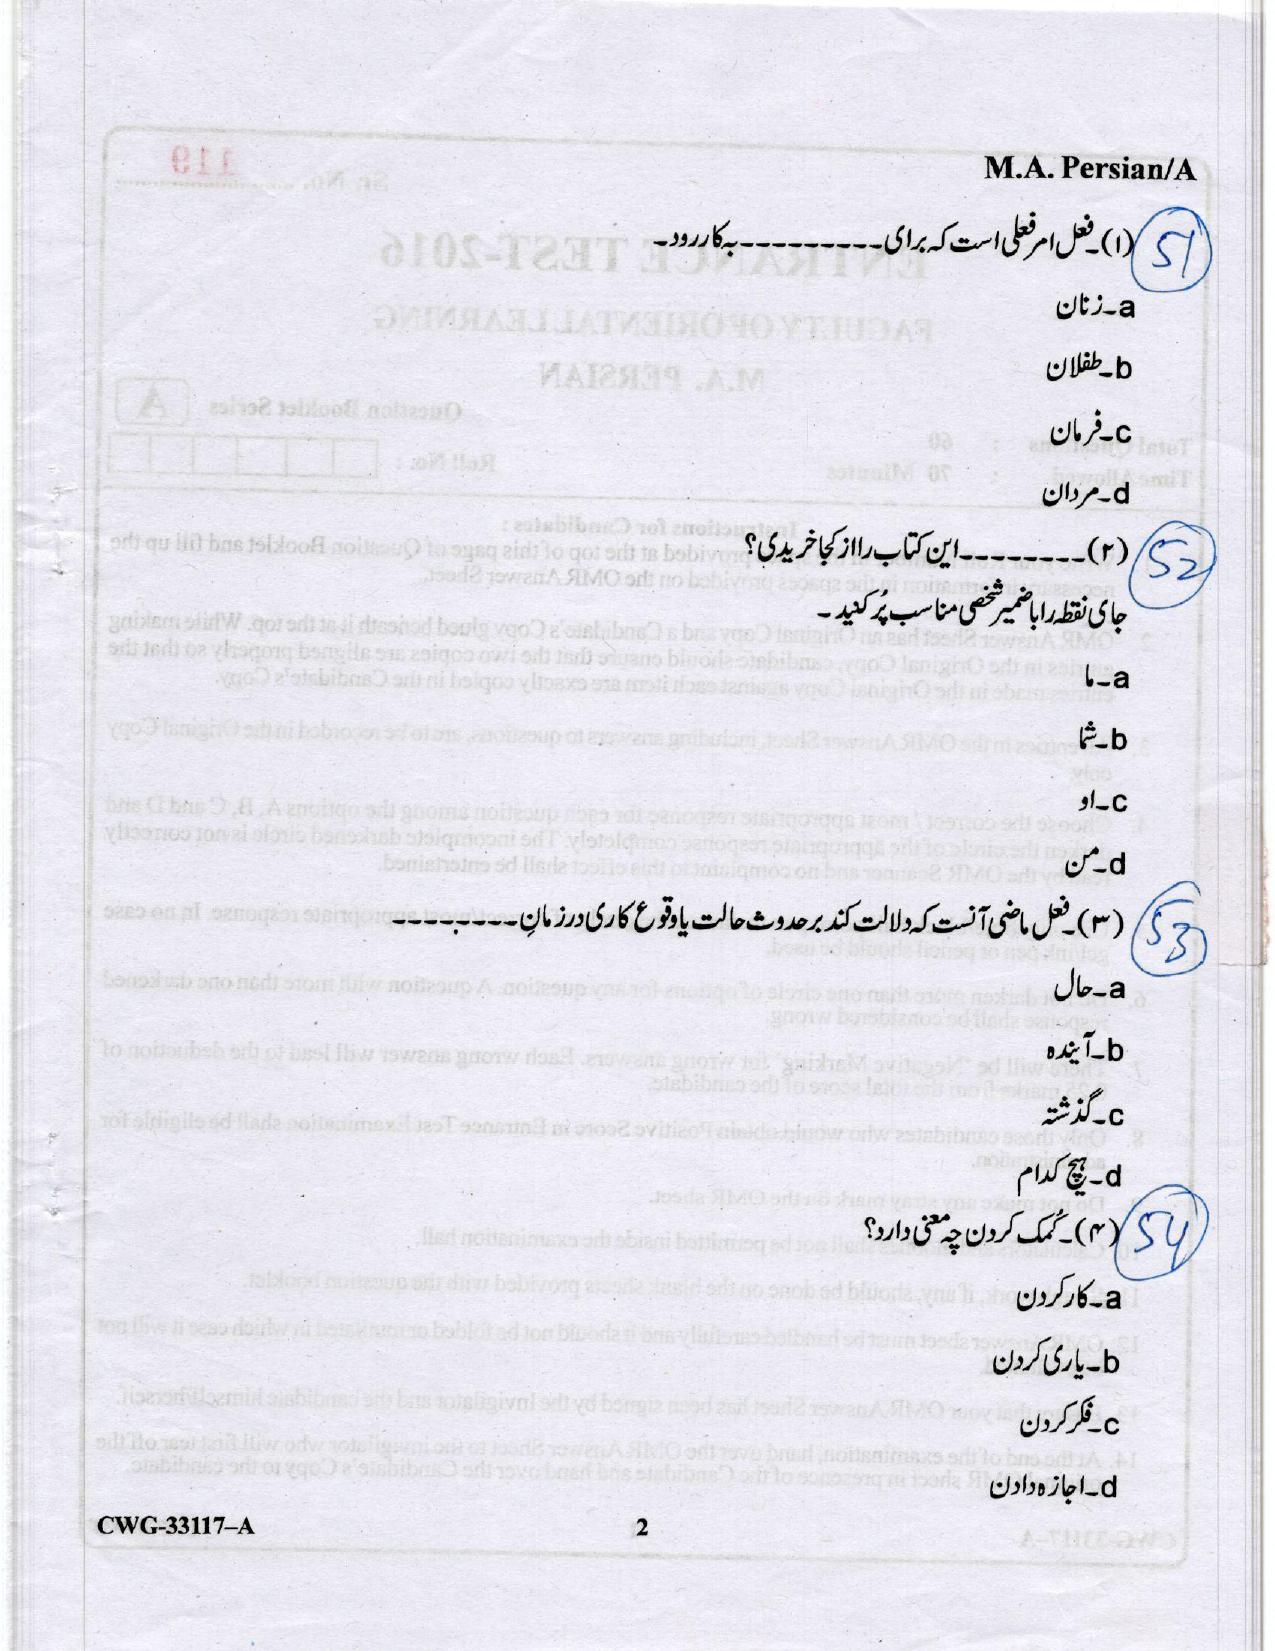 M.A. Persian/A
51
(۱)۔فعل امر فعلی است که برای۔۔۔۔۔۔۔۔۔به کار رود۔
a۔زنان
b۔طفلان
c۔فرمان
d۔مردان
52
(۲)۔۔۔۔۔۔۔۔۔این کتاب را از کجا خریدی؟
جای نقطه را با ضمیر شخصی مناسب پُر کنید۔
a۔ما
b۔شما
c۔او
d۔من
53
(۳)۔فعل ماضی آنست که دلالت کند بر حدوث حالت یا وقوع کاری در زمانِ۔۔۔۔۔۔۔۔
a۔حال
b۔آینده
c۔گذشته
d۔هیچ کدام
54
(۴)۔کُمک کردن چه معنی دارد؟
a۔کار کردن
b۔یاری کردن
c۔فکر کردن
d۔اجازه دادن
CWG-33117–A
2